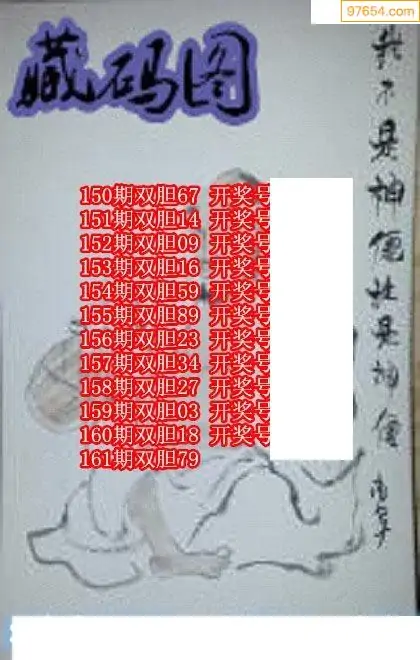 97654.com
藏码图
150期双胆67 开奖号
151期双胆14 开奖号
152期双胆09 开奖号
153期双胆16 开奖号
154期双胆59 开奖号
155期双胆89 开奖号
156期双胆23 开奖号
157期双胆34 开奖号
158期双胆27 开奖号
159期双胆03 开奖号
160期双胆18 开奖号
161期双胆79
不是神仙胜是神仙